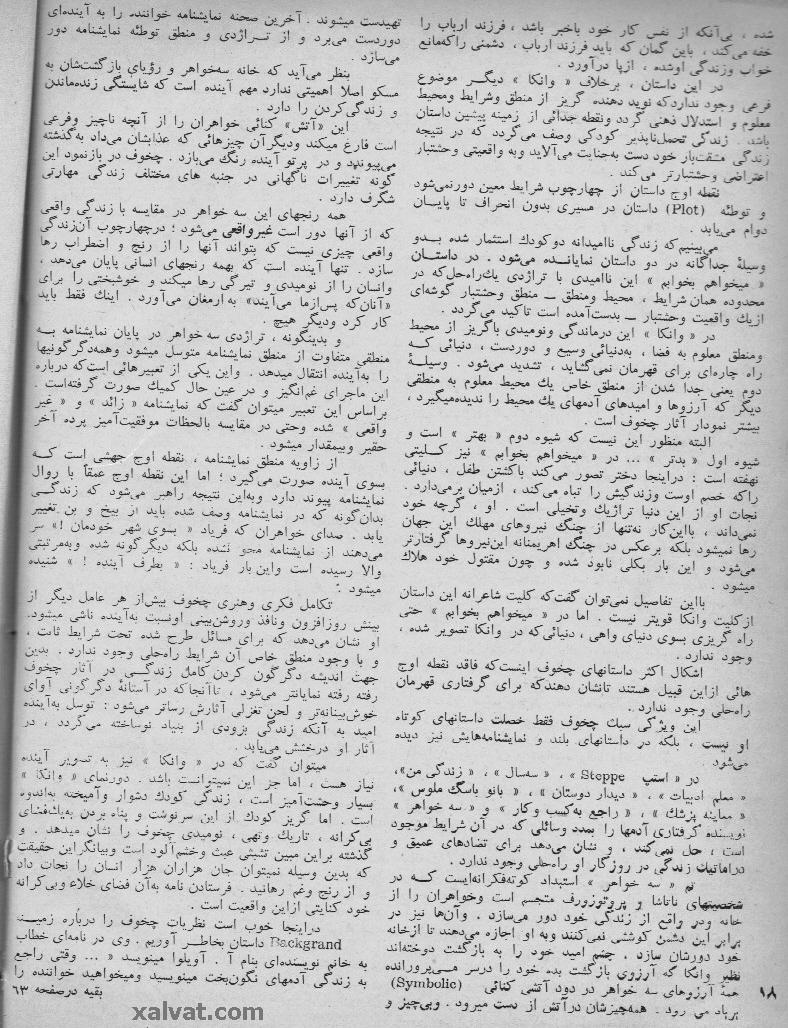 شده ، بی‌آنکه از نفس کار خود باخبر باشد ، فرزند ارباب را
خفه می‌کند ، باین گمان که باید فرزند ارباب ، دشمنی را که مانع
خواب وزندگی اوشده ، ازپا درآورد .
در این داستان ، برخلاف « وانکا » دیگر موضوع
فرعی وجود ندارد که نوید دهنده گریز از منطق وشرایط ومحیط
معلوم و استدلال ذهنی گردد ونقطه جدائی از زمینه پیشین داستان
باشد . زندگی تحمل‌ناپذیر کودکی وصف می‌گردد که در نتیجه
زندگی مشقت‌بار خود دست به‌جنایت می‌آلاید وبه واقعیتی وحشتبار
اعتراضی وحشتبارتر می‌کند .
نقطه اوج داستان از چهارچوب شرایط معین دورنمی‌شود
و توطئه (Plot) داستان در مسیری بدون انحراف تا پایان
دوام می‌یابد .
می‌بینیم که زندگی ناامیدانه دوکودك استثمار شده بدو
وسیلهٔ جداگانه در دو داستان نمایانده می‌شود . در داستان
« میخواهم بخوابم » این ناامیدی با تراژدی یك‌راه‌حل که در
محدوده همان شرایط ، محیط ومنطق ــ منطق وحشتبار گوشه‌ای
ازیك واقعیت وحشتبار ــ بدست‌آمده است تاکید می‌گردد .
در « وانکا » این درماندگی ونومیدی باگریز از محیط
ومنطق معلوم به فضا ، به‌دنیائی وسیع و دوردست ، دنیائی که
راه چاره‌ای برای قهرمان نمی‌گشاید ، تشدید می‌شود . وسیلهٔ
دوم یعنی جدا شدن از منطق خاص یك محیط معلوم به منطقی
دیگر که آرزوها و امیدهای آدمهای یك محیط را ندیده‌میگیرد ،
بیشتر نمودار آثار چخوف است .
البته منظور این نیست که شیوه دوم « بهتر » است و
شیوه اول « بدتر » ... در « میخواهم بخوابم » نیز کلیتی
نهفته است : دراینجا دختر تصور می‌کند باکشتن طفل ، دنیائی
راکه خصم اوست وزندگیش را تباه می‌کند ، ازمیان برمی‌دارد .
نجات او از این دنیا تراژیك وتخیلی است . او ، گرچه خود
نمی‌داند ، بااین‌کار نه‌تنها از چنگ نیروهای مهلك این جهان
رها نمیشود بلکه برعکس در چنگ اهریمنانه این‌نیروها گرفتارتر
می‌شود و این بار بکلی نابود شده و چون مقتول خود هلاك
میشود .
بااین تفاصیل نمی‌توان گفت‌که کلیت شاعرانه این داستان
ازکلیت وانکا قویتر نیست . اما در « میخواهم بخوابم » حتی
راه گریزی بسوی دنیای واهی ، دنیائی‌که در وانکا تصویر شده ،
وجود ندارد .
اشکال اکثر داستانهای چخوف اینست‌که فاقد نقطه اوج
هائی ازاین قبیل هستند تانشان دهندکه برای گرفتاری قهرمان
راه‌حلی وجود ندارد .
این ویژگی سبك چخوف فقط خصلت داستانهای کوتاه
او نیست ، بلکه در داستانهای بلند و نمایشنامه‌هایش نیز دیده
می‌شود .
در « استپ Steppe » ، « سه‌سال » ، « زندگی من» ،
« معلم ادبیات » ، « دیدار دوستان » ، « بانو باسگ ملوس » ،
« معاینه پزشك » ، « راجع به‌کسب وکار » و « سه خواهر »
نویسنده گرفتاری آدمها را بمدد وسائلی که در آن شرایط موجود
است ، حل نمی‌کند ، و نشان می‌دهد برای تضادهای عمیق و
دراماتیك زندگی در روزگار او راه‌حلی وجود ندارد .
تم « سه خواهر » استبداد کوته‌فکرانه‌ایست که در
شخصیتهای ناتاشا و پروتوزوف متجسم است وخواهران را از
خانه ودر واقع از زندگی خود دور می‌سازد . وآن‌ها نیز در
برابر این دشمن کوششی نمی‌کنند وبه او اجازه می‌دهند تا ازخانه
خود دورشان سازد . چشم امید خود را به بازگشت دوخته‌اند
نظیر وانکا که آرزوی بازگشت بده خود را درسر می‌پرورانده
همهٔ آرزوهای سه خواهر در دود آتشی کنائی (Symbolic)
برباد می رود . همه‌چیزشان درآتش از دست میرود . وبی‌چیز و
تهیدست میشوند . آخرین صحنه نمایشنامه خواننده را به آینده‌ای
دوردست می‌برد و از تراژدی و منطق توطئه نمایشنامه دور
می‌سازد .
بنظر می‌آید که خانه سه‌خواهر و رؤیای بازگشت‌شان به
مسکو اصلا اهمیتی ندارد مهم آینده است که شایستگی زنده‌ماندن
و زندگی‌کردن را دارد .
این «آتش» کنائی خواهران را از آنچه ناچیز وفرعی
است فارغ میکند ودیگر آن چیزهائی که عذابشان می‌داد به‌گذشته
می‌پیوندد و در پرتو آینده رنگ می‌بازد . چخوف در بازنمود این
گونه تغییرات ناگهانی در جنبه های مختلف زندگی مهارتی
شگرف دارد .
همه رنجهای این سه خواهر در مقایسه با زندگی واقعی
که از آنها دور است غیرواقعی می‌شود ؛ درچهارچوب آن‌زندگی
واقعی چیزی نیست که بتواند آنها را از رنج و اضطراب رها
سازد . تنها آینده است که بهمه رنجهای انسانی پایان می‌دهد ،
وانسان را از نومیدی و تیرگی رها میکند و خوشبختی را برای
«آنان‌که پس‌ازما می‌آیند» به‌ارمغان می‌آورد . اینك فقط باید
کار کرد ودیگر هیچ .
و بدینگونه ، تراژدی سه خواهر در پایان نمایشنامه به
منطقی متفاوت از منطق نمایشنامه متوسل میشود وهمه‌دگرگونیها
را به‌آینده انتقال میدهد . واین یکی از تعبیرهائی است‌که درباره
این ماجرای غم‌انگیز و در عین حال کمیك صورت گرفته‌است .
براساس این تعبیر میتوان گفت که نمایشنامه « زائد » و « غیر
واقعی » شده وحتی در مقایسه بالحظات موفقیت‌آمیز پرده آخر
حقیر وبیمقدار میشود .
از زاویه منطق نمایشنامه ، نقطه اوج جهشی است که
بسوی آینده صورت می‌گیرد ؛ اما این نقطه اوج عمقاً با روال
نمایشنامه پیوند دارد وبه‌این نتیجه راهبر می‌شود که زندگی
بدان‌گونه که در نمایشنامه وصف شده باید از بیخ و بن تغییر
یابد . صدای خواهران که فریاد « بسوی شهر خودمان !» سر
می‌دهند از نمایشنامه محو نشده بلکه دیگرگونه شده وبه‌مرتبتی
والا رسیده است واین‌بار فریاد : « بطرف آینده ! » شنیده
میشود .
تکامل فکری وهنری چخوف بیش‌از هر عامل دیگر از
بینش روزافزون ونافذ وروشن‌بینی اونسبت به‌آینده ناشی میشود.
او نشان می‌دهد که برای مسائل طرح شده تحت شرایط ثابت ،
و با وجود منطق خاص آن شرایط راه‌حلی وجود ندارد . بدین
جهت اندیشه دگرگون کردن کامل زندگی در آثار چخوف
رفته رفته نمایانتر می‌شود ، تاآنجاکه در آستانهٔ دگرگونی آوای
خوش‌بینانه‌تر و لحن تغزلی آثارش رساتر می‌شود : توسل به‌آینده
امید به آنکه زندگی بزودی از بنیاد نوساخته می‌گردد ، در
آثار او درخشش می‌یابد .
میتوان گفت که در « وانکا » نیز به تصویر آینده
نیاز هست ، اما جز این نمیتوانست باشد . دورنمای « وانکا »
بسیار وحشت‌آمیز است ، زندگی کودك دشوار وآمیخته به‌اندوه
است . اما گریز کودك از این سرنوشت و پناه بردن به‌یك‌فضای
بی‌کرانه ، تاریك وتهی ، نومیدی چخوف را نشان میدهد . و
گذشته براین مبین تشبثی عبث وخشم‌آلود است وبیانگراین حقیقت
که بدین وسیله نمیتوان جان هزاران هزار انسان را نجات داد
و از رنج وغم رهانید . فرستادن نامه به‌آن فضای خلاء وبی‌کرانه
خود کنایتی ازاین واقعیت است .
دراینجا خوب است نظریات چخوف را درباره زمینه
Backgrand داستان بخاطر آوریم . وی در نامه‌ای خطاب
به خانم نویسنده‌ای بنام آ . آویلوا مینویسد « ... وقتی راجع
به زندگی آدمهای نگون‌بخت مینویسید ومیخواهید خواننده را
بقیه درصفحه ۶۳
۱۸
xalvat.com